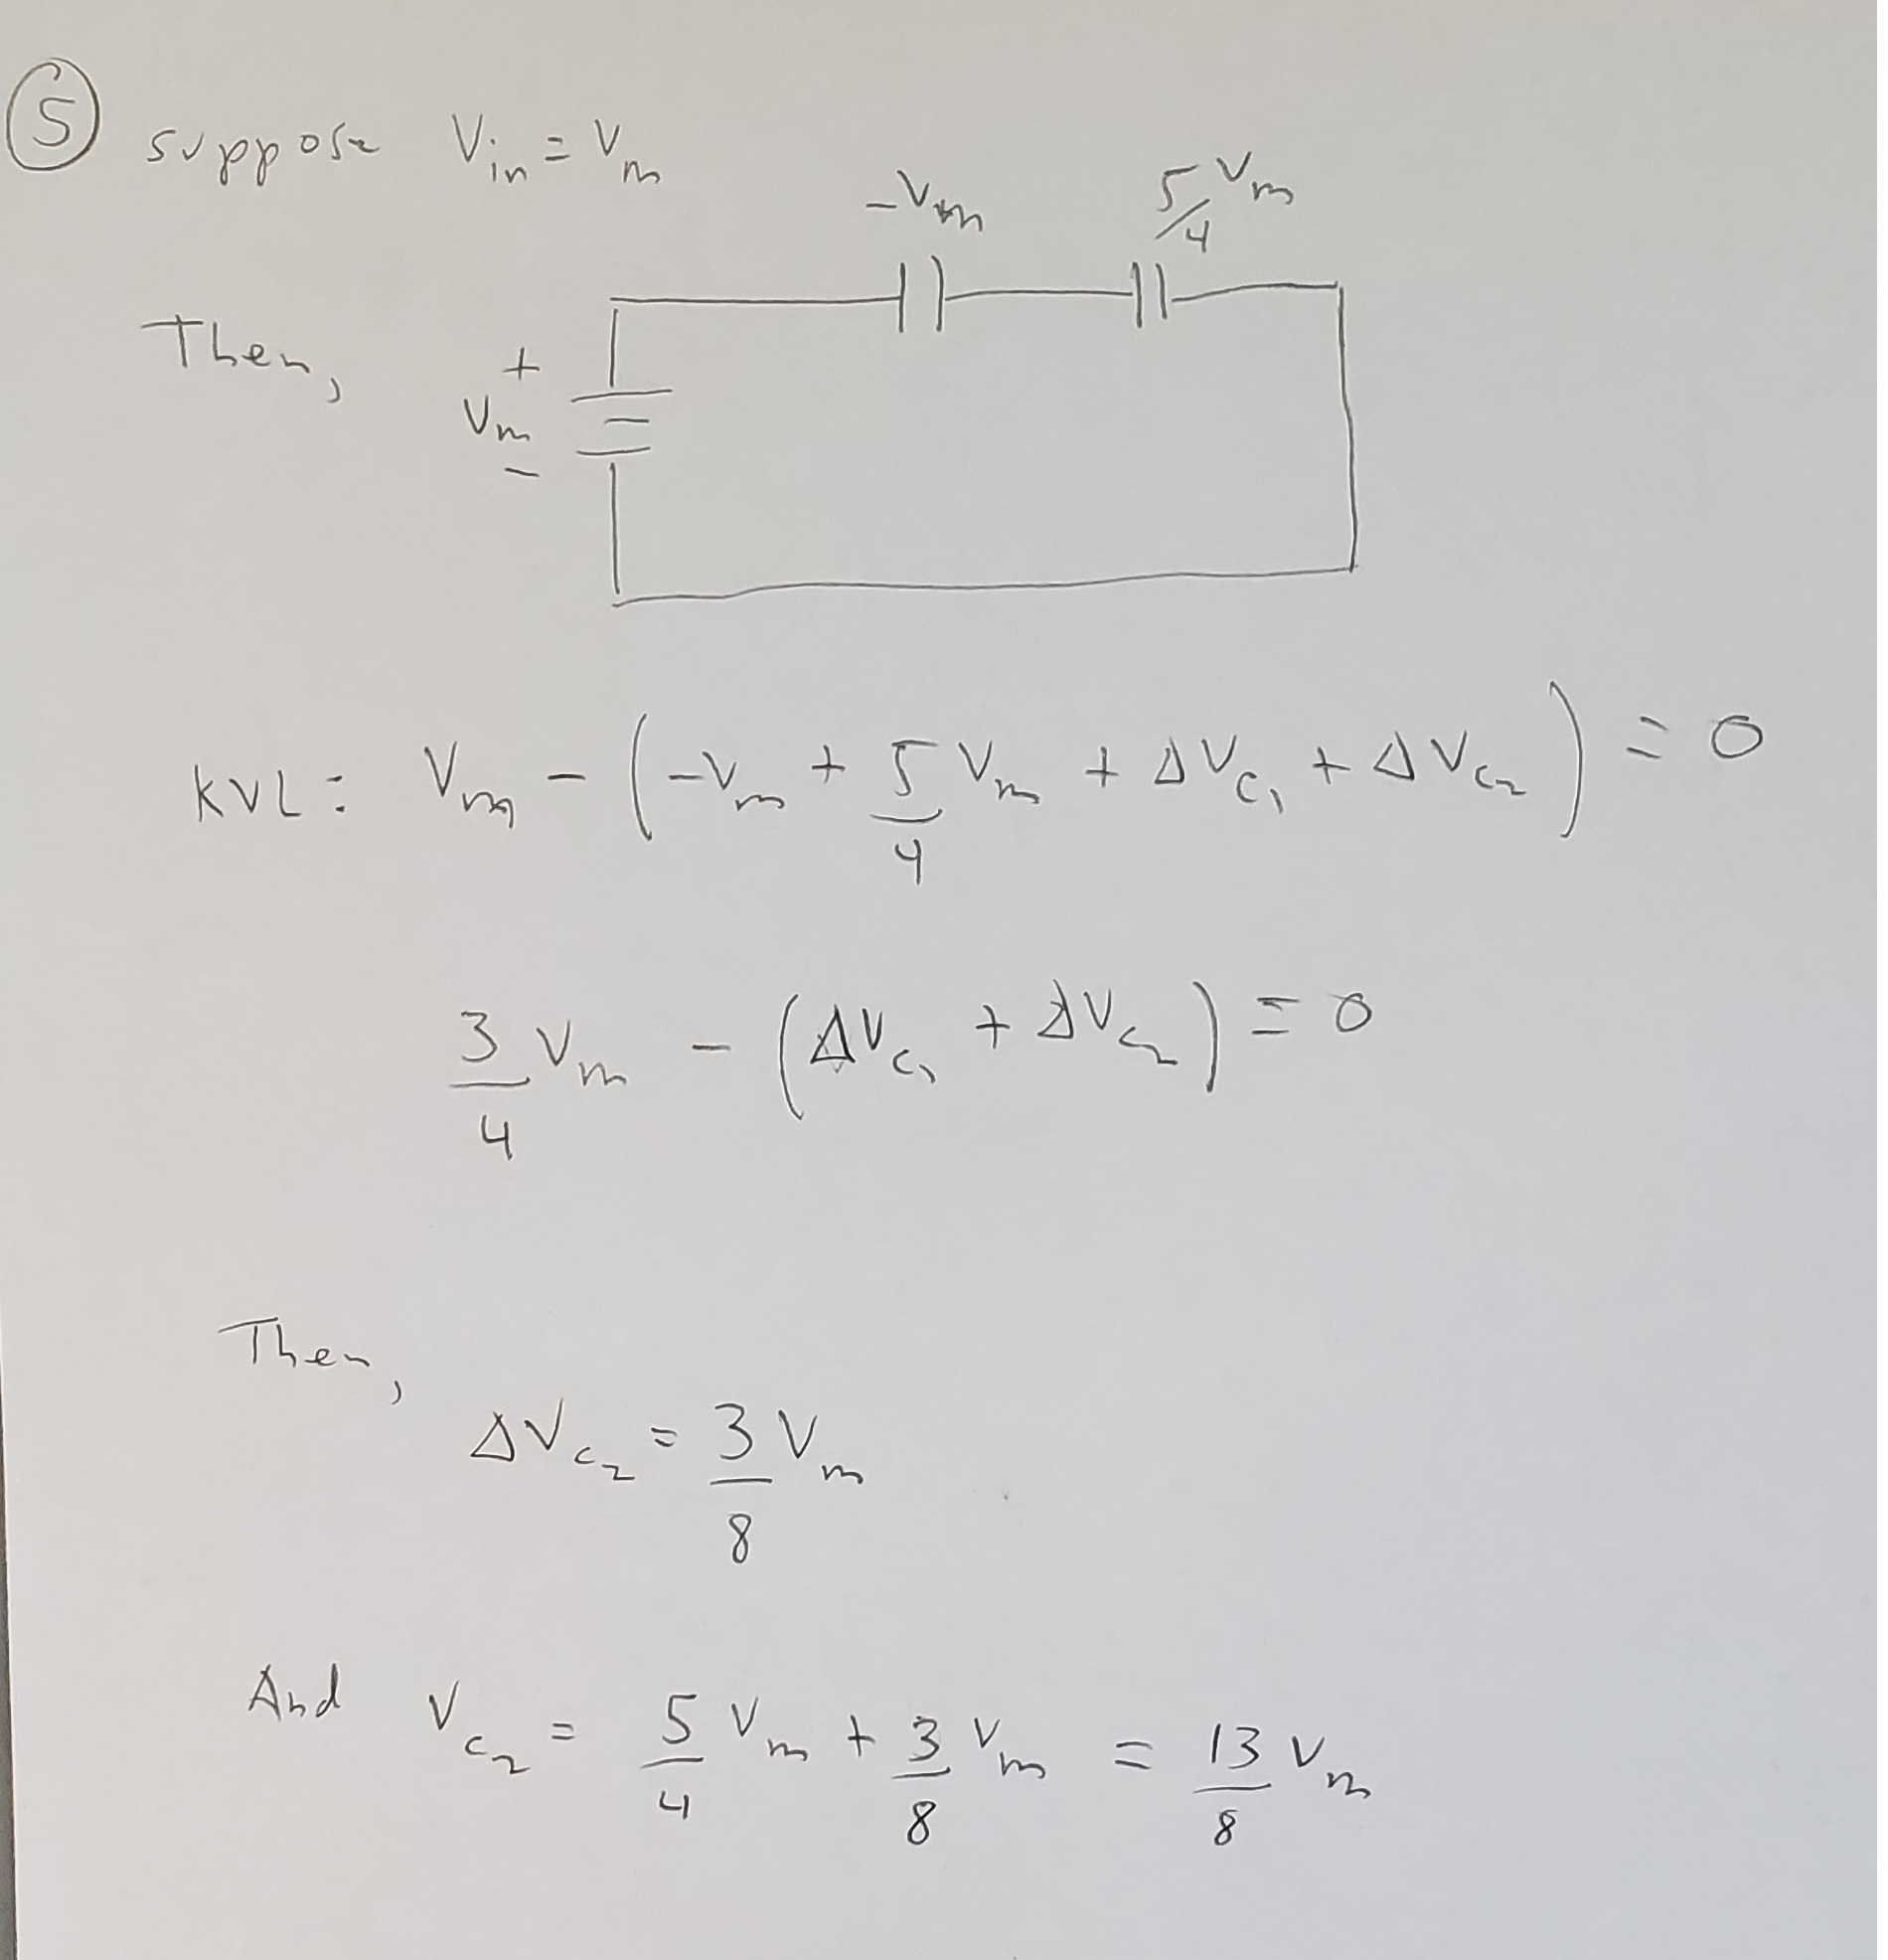 ⑤ suppose Vin = Vm
-Vm 5/4 Vm
Then,
+
Vm
-
KVL: Vm - (-Vm + 5/4 Vm + ΔVC1 + ΔVC2) = 0
3/4 Vm - (ΔVC1 + ΔVC2) = 0
Then,
ΔVC2 = 3/8 Vm
And VC2 = 5/4 Vm + 3/8 Vm = 13/8 Vm